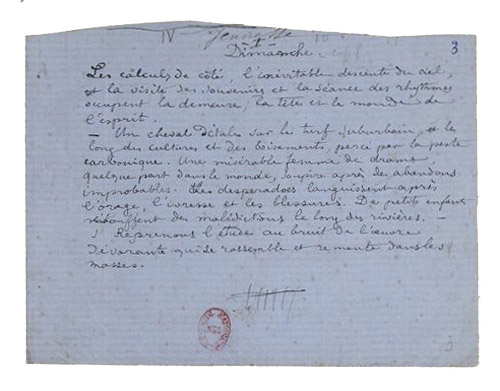 IV Jeunesse
3
I
Dimanche.
Les calculs de côté, l'inévitable descente du ciel,
et la visite des souvenirs et la séance des rhythmes
occupent la demeure, la tête et le monde de
l'esprit.
— Un cheval détale sur le turf suburbain, et les
long des cultures et des boisements, percé par la peste
carbonique. Une misérable femme de drame,
quelque part dans le monde, soupire après des abandons
improbables. Les desperadoes languissent après
l'orage, l'ivresse et les blessures. De petits enfants
étouffent des malédictions le long des rivières. —
Reprenons l'étude au bruit de l'œuvre
dévorante qui se rassemble et remonte dans les
masses.